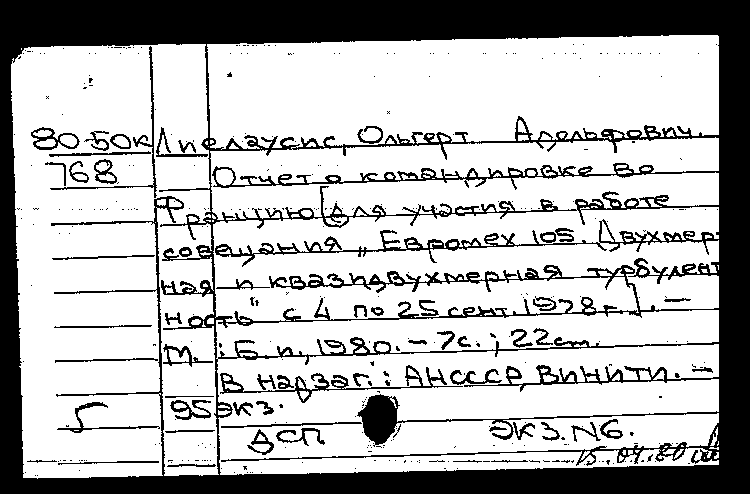 80-50к Лиелаусис, Ольгерт Адольфович.
768 Отчет о командировке во
Францию [для участия в работе
совещания „Евромех 105. Двухмер-
ная и квазидвухмерная турбулент
ность" с 4 по 25 сент. 1978 г.]. —
М. : Б. и., 1980. — 7с. ; 22 cm.
В надзаг.: АН СССР, ВИНИТИ. —
5 95 экз.
ДСП ЭКЗ. N6.
15.04.80